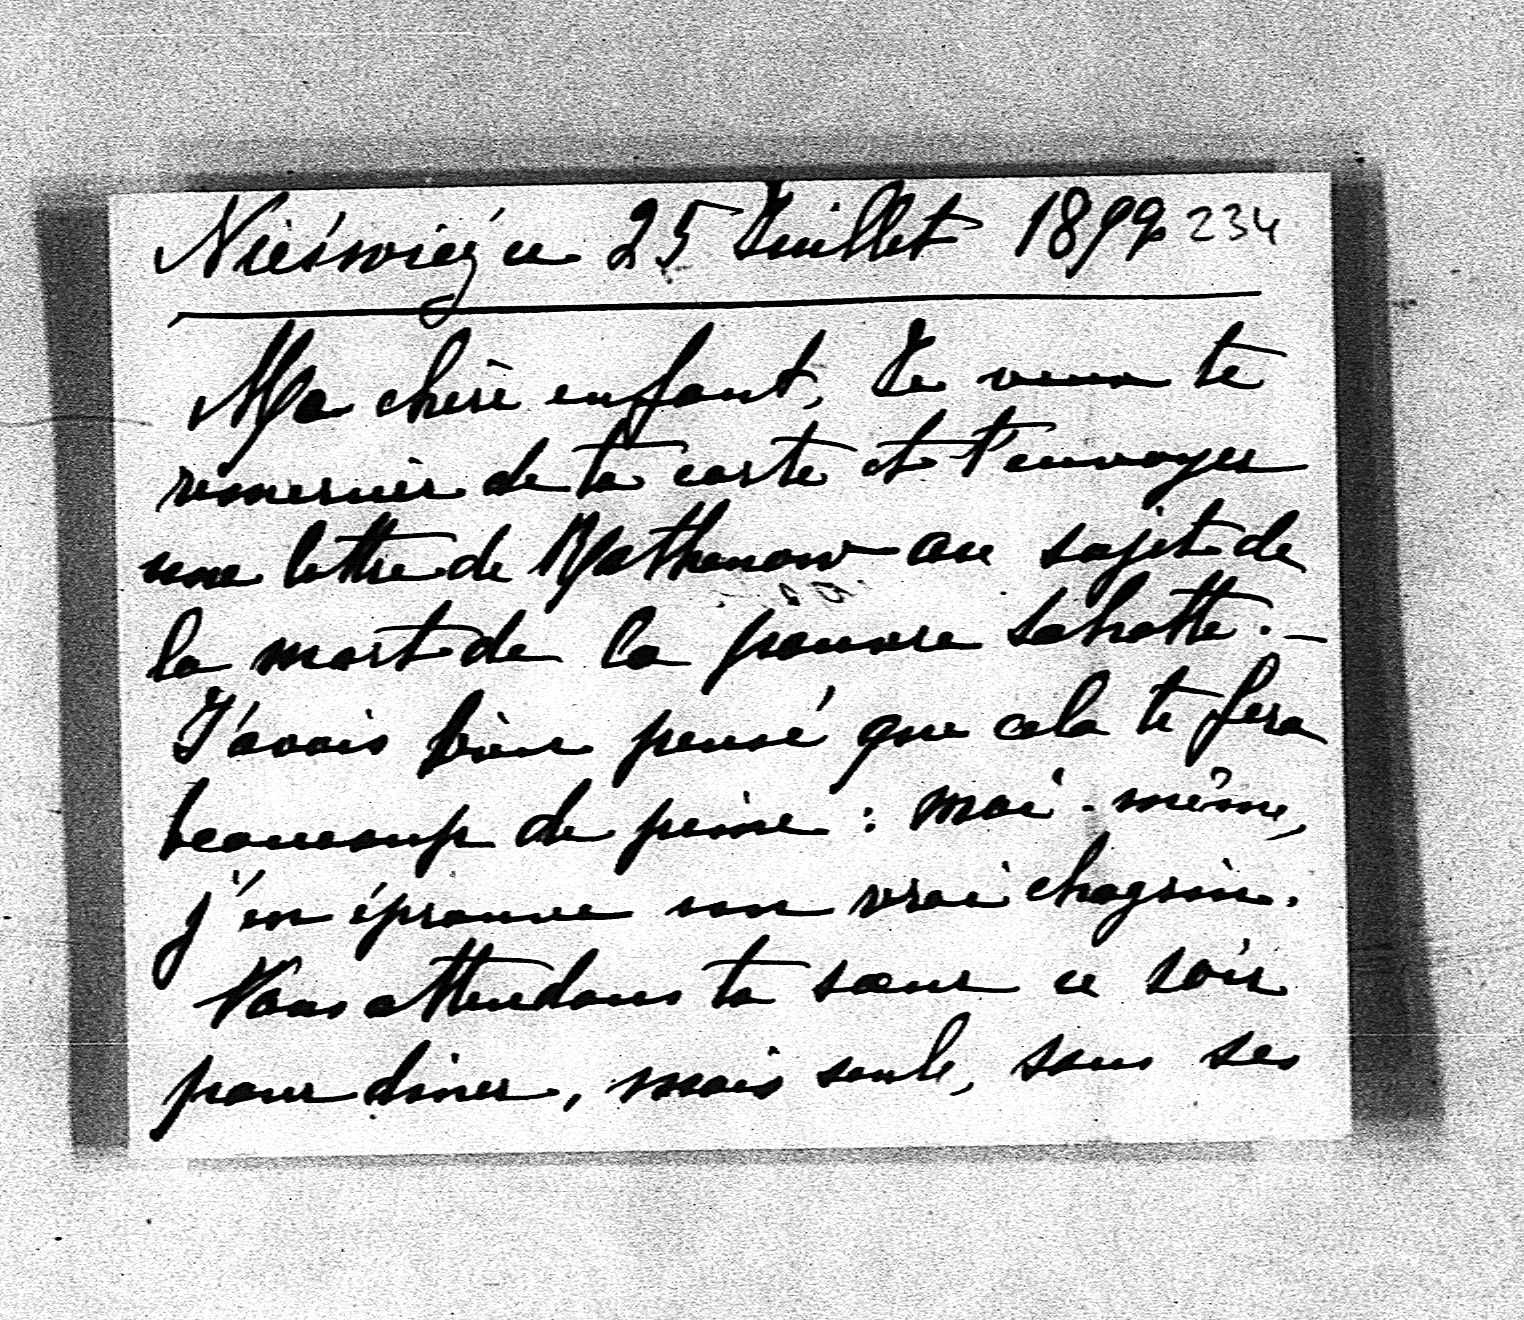 Nieśwież ce 25 Juillet 1899 234
Ma chère enfant, Je veux te
remercier de ta carte et t'envoyer
une lettre de Rathenow au sujet de
la mort de la pauvre
J'avais bien pensé que cela te fera
beaucoup de peine : moi-même,
j'en éprouve un vrai chagrin.
Nous attendons ta sœur ce soir
pour diner, mais seule, sans ses